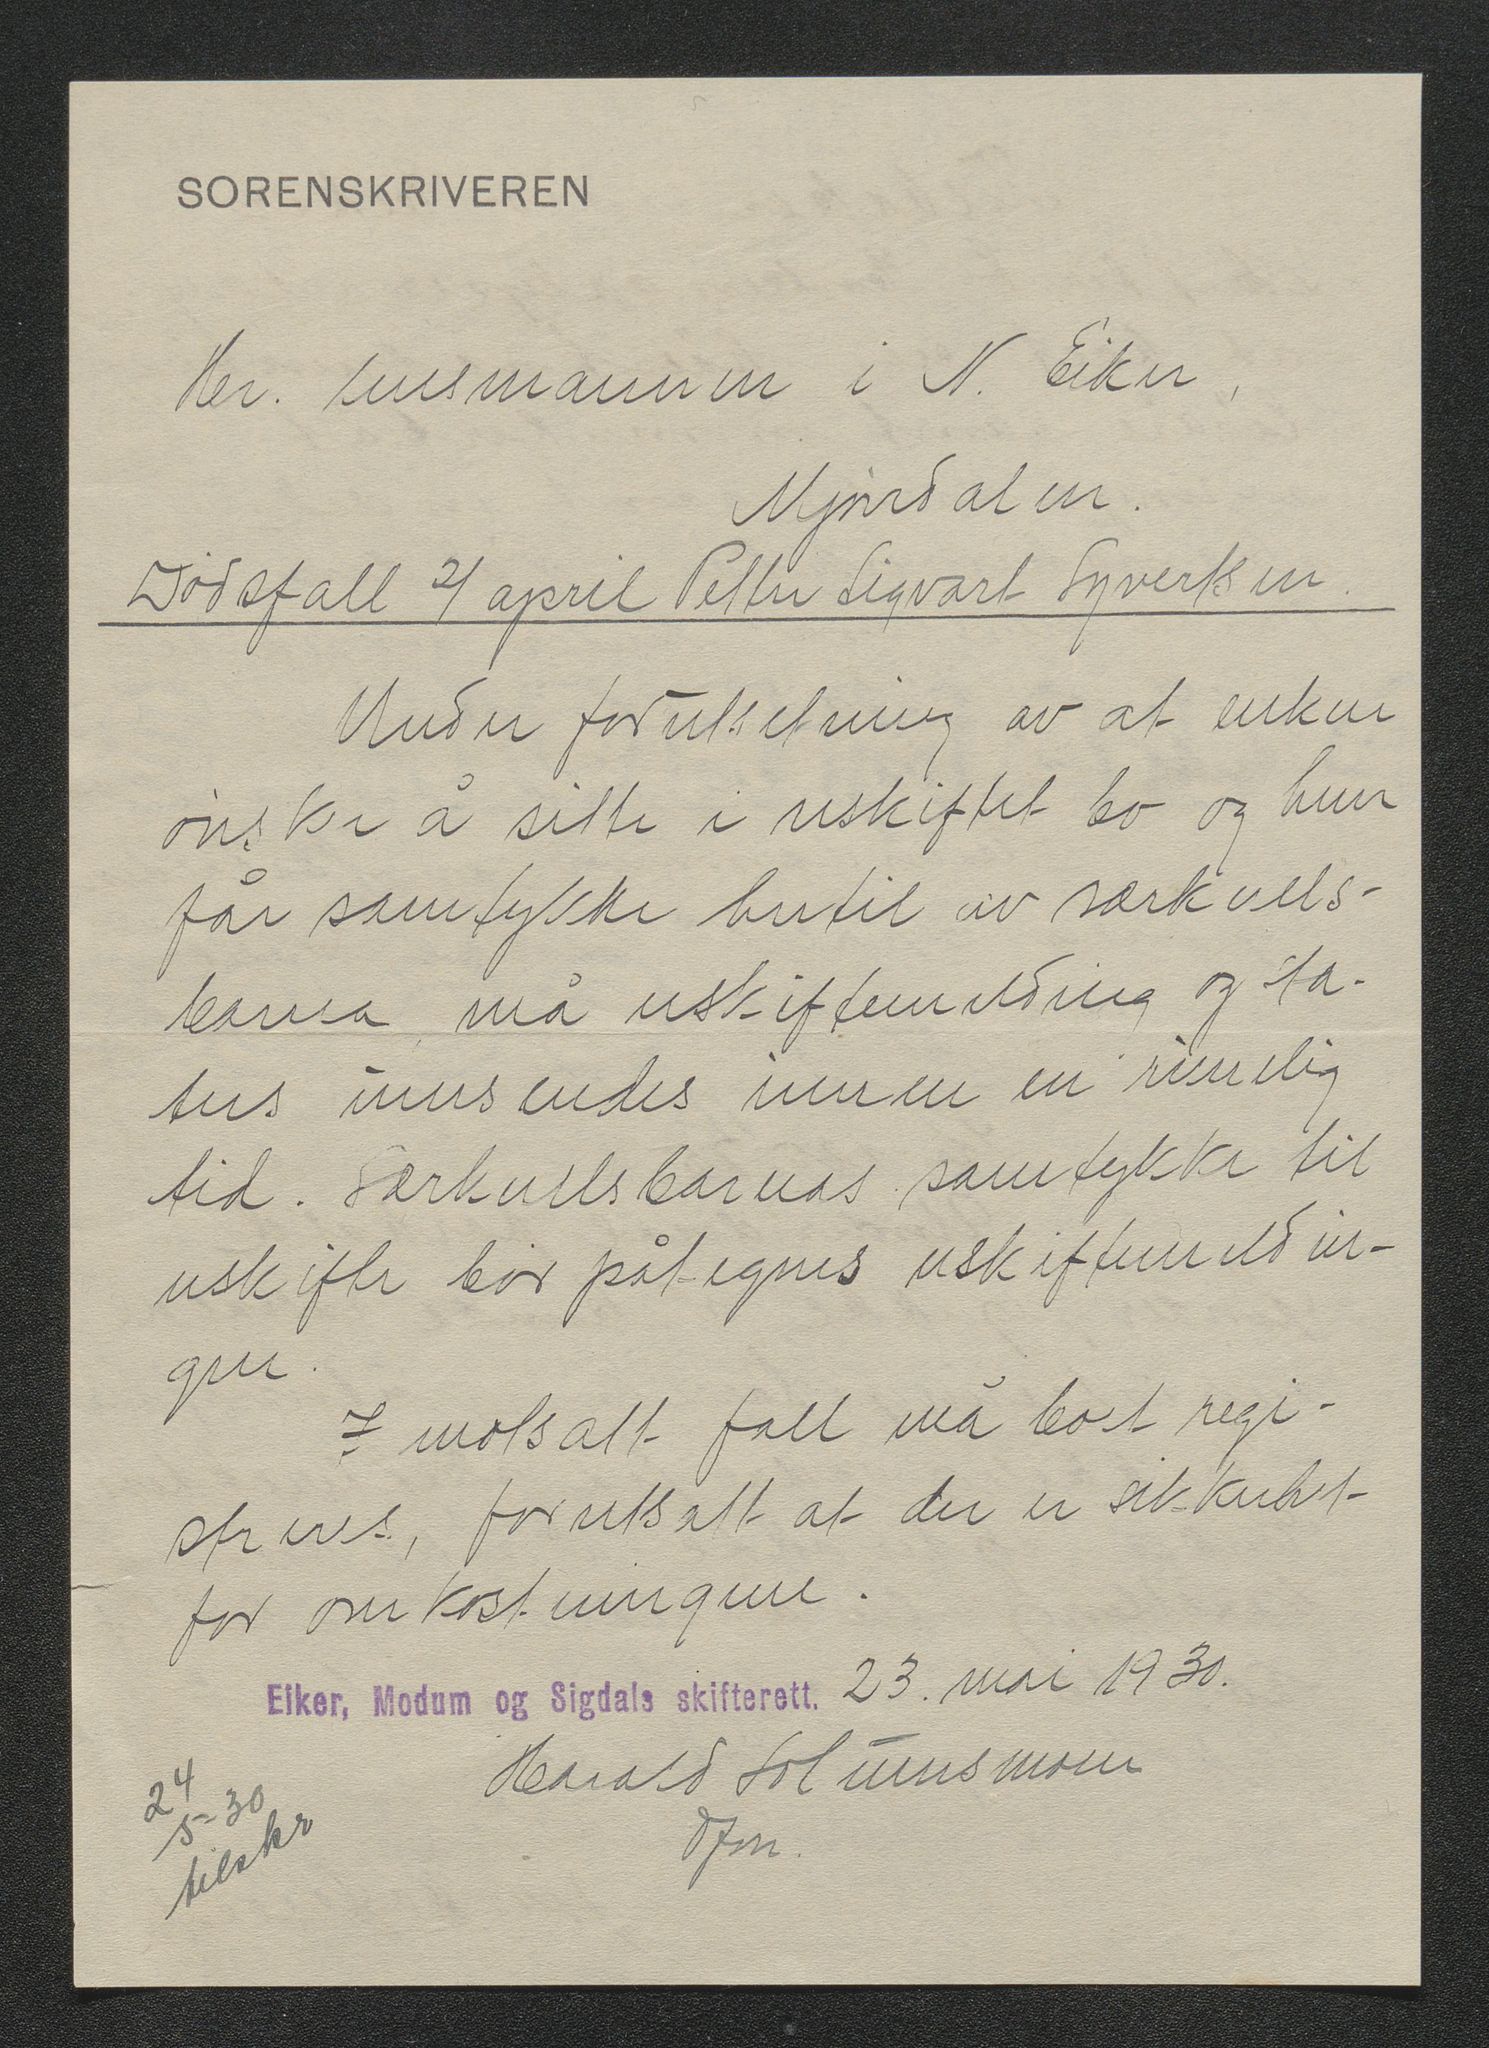 SORENSKRIVEREN
Hr. lensmannen i N. Eiker,
Mjøndalen.
Dødsfall 2/ april Petter Sigvart Syvertsen.
Under forutsetning av at enken
ønsker å sitte i uskiftet bo og hun
får samtykke hertil av særkulls-
barna, må uskiftemelding og sta-
tus innsendes innen en rimelig
tid. Særkullsbarnas samtykke til
uskifte bør påtegnes uskiftemeldin-
gen.
I motsatt fall må boet regi-
streres, forutsatt at der er sikkerhet
for omkostningene.
Eiker, Modum og Sigdals skifterett. 23. mai 1930.
Harald
dfm.
24
5-30
tilskr